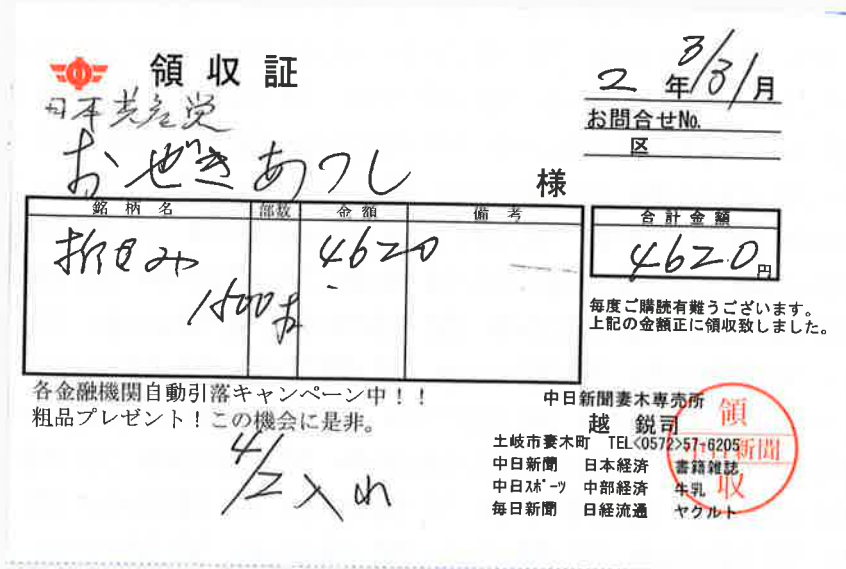 領収証
2年3/31月
お問合せNo.
区
日本共産党
おぜきあつし 様
銘柄名 部数 金額 備考
折込み 4620
1500枚
合計金額
4620円
毎度ご購読有難うございます。
上記の金額正に領収致しました。
各金融機関自動引落キャンペーン中！！
粗品プレゼント！この機会に是非。
4/2入れ
中日新聞妻木専売所
越 鋭司
土岐市妻木町 TEL<0572>57-6205
中日新聞 日本経済 書籍雑誌
中日スポーツ 中部経済 牛乳
毎日新聞 日経流通 ヤクルト
領
中日新聞
収